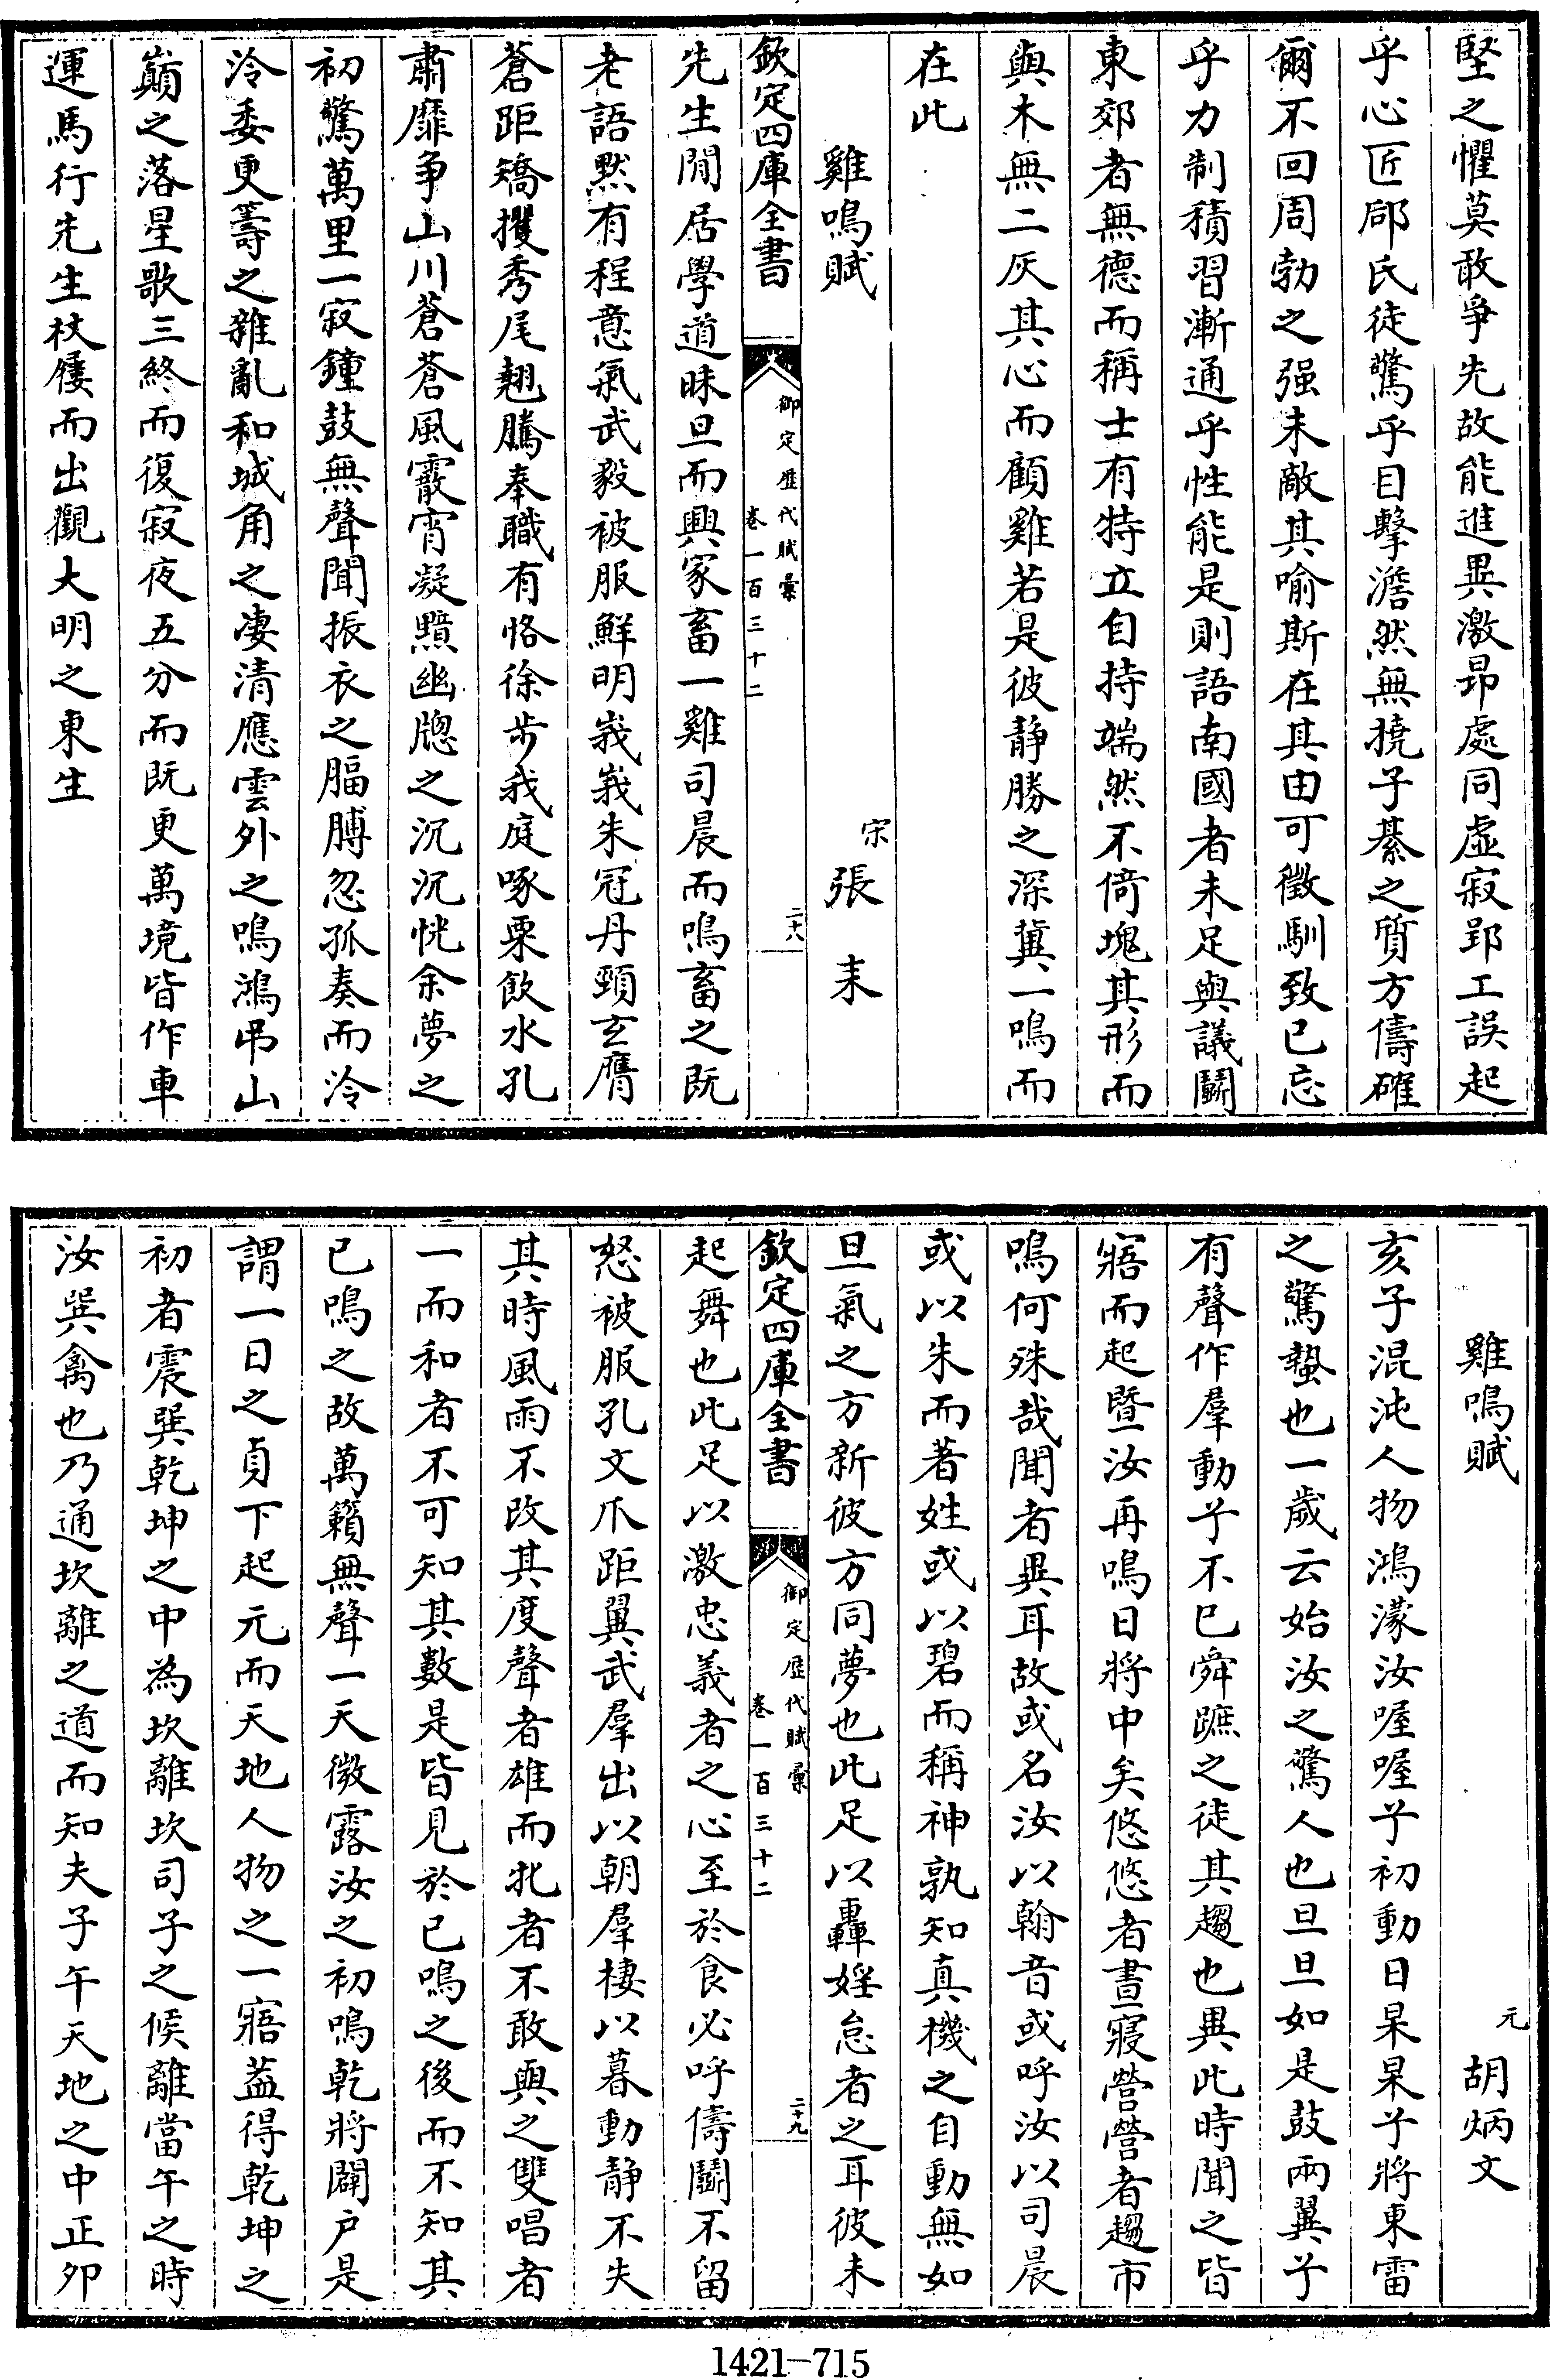 堅之懼莫敢爭先故能進異激昻處同虛寂郢工誤起
乎心匠郈氏徒驚乎目擊澹然無撓子綦之質方儔確
爾不回周勃之强未敵其喻斯在其由可徵馴致已忘
乎力制積習漸通乎性能是則語南國者未足與議鬬
東郊者無德而稱士有特立自持端然不倚塊其形而
與木無二灰其心而顧雞若是彼静勝之深冀一鳴而
在此
雞鳴賦
宋張耒
欽定四庫全書
御定歷代賦彙
卷一百三十二
二十八
先生閒居學道昧旦而興家畜一雞司晨而鳴畜之既
老語黙有程意氣武毅被服鮮明峩峩朱冠丹頸玄膺
蒼距矯攫秀尾翹騰奉職有恪徐步我庭啄粟飲水孔
肅靡争山川蒼蒼風霰宵凝黯幽牕之沉沉恍余夢之
初驚萬里一寂鐘鼓無聲聞振衣之腷膊忽孤奏而泠
泠委更籌之雜亂和城角之凄清應雲外之鳴鴻弔山
巔之落星歌三終而復寂夜五分而既更萬境皆作車
運馬行先生杖屨而出觀大明之東生
雞鳴賦
元胡炳文
亥子混沌人物鴻濛汝喔喔兮初動日杲杲兮將東雷
之驚蟄也一歲云始汝之驚人也旦旦如是鼓兩翼兮
有聲作羣動兮不已舜蹠之徒其趨也異此時聞之皆
寤而起曁汝再鳴日將中矣悠悠者晝寢營營者趨市
鳴何殊哉聞者異耳故或名汝以翰音或呼汝以司晨
或以朱而著姓或以碧而稱神孰知真機之自動無如
旦氣之方新彼方同夢也此足以轟婬怠者之耳彼未
欽定四庫全書
御定歷代賦彙
卷一百三十二
二十九
起舞也此足以激忠義者之心至於食必呼儔鬬不留
怒被服孔文爪距翼武羣出以朝羣棲以暮動静不失
其時風雨不改其度聲者雄而牝者不敢與之雙唱者
一而和者不可知其數是皆見於已鳴之後而不知其
已鳴之故萬籟無聲一天微露汝之初鳴乾將闢户是
謂一日之貞下起元而天地人物之一寤葢得乾坤之
初者震巽乾坤之中為坎離坎司子之候離當午之時
汝巽禽也乃通坎離之道而知夫子午天地之中正卯
1421—715